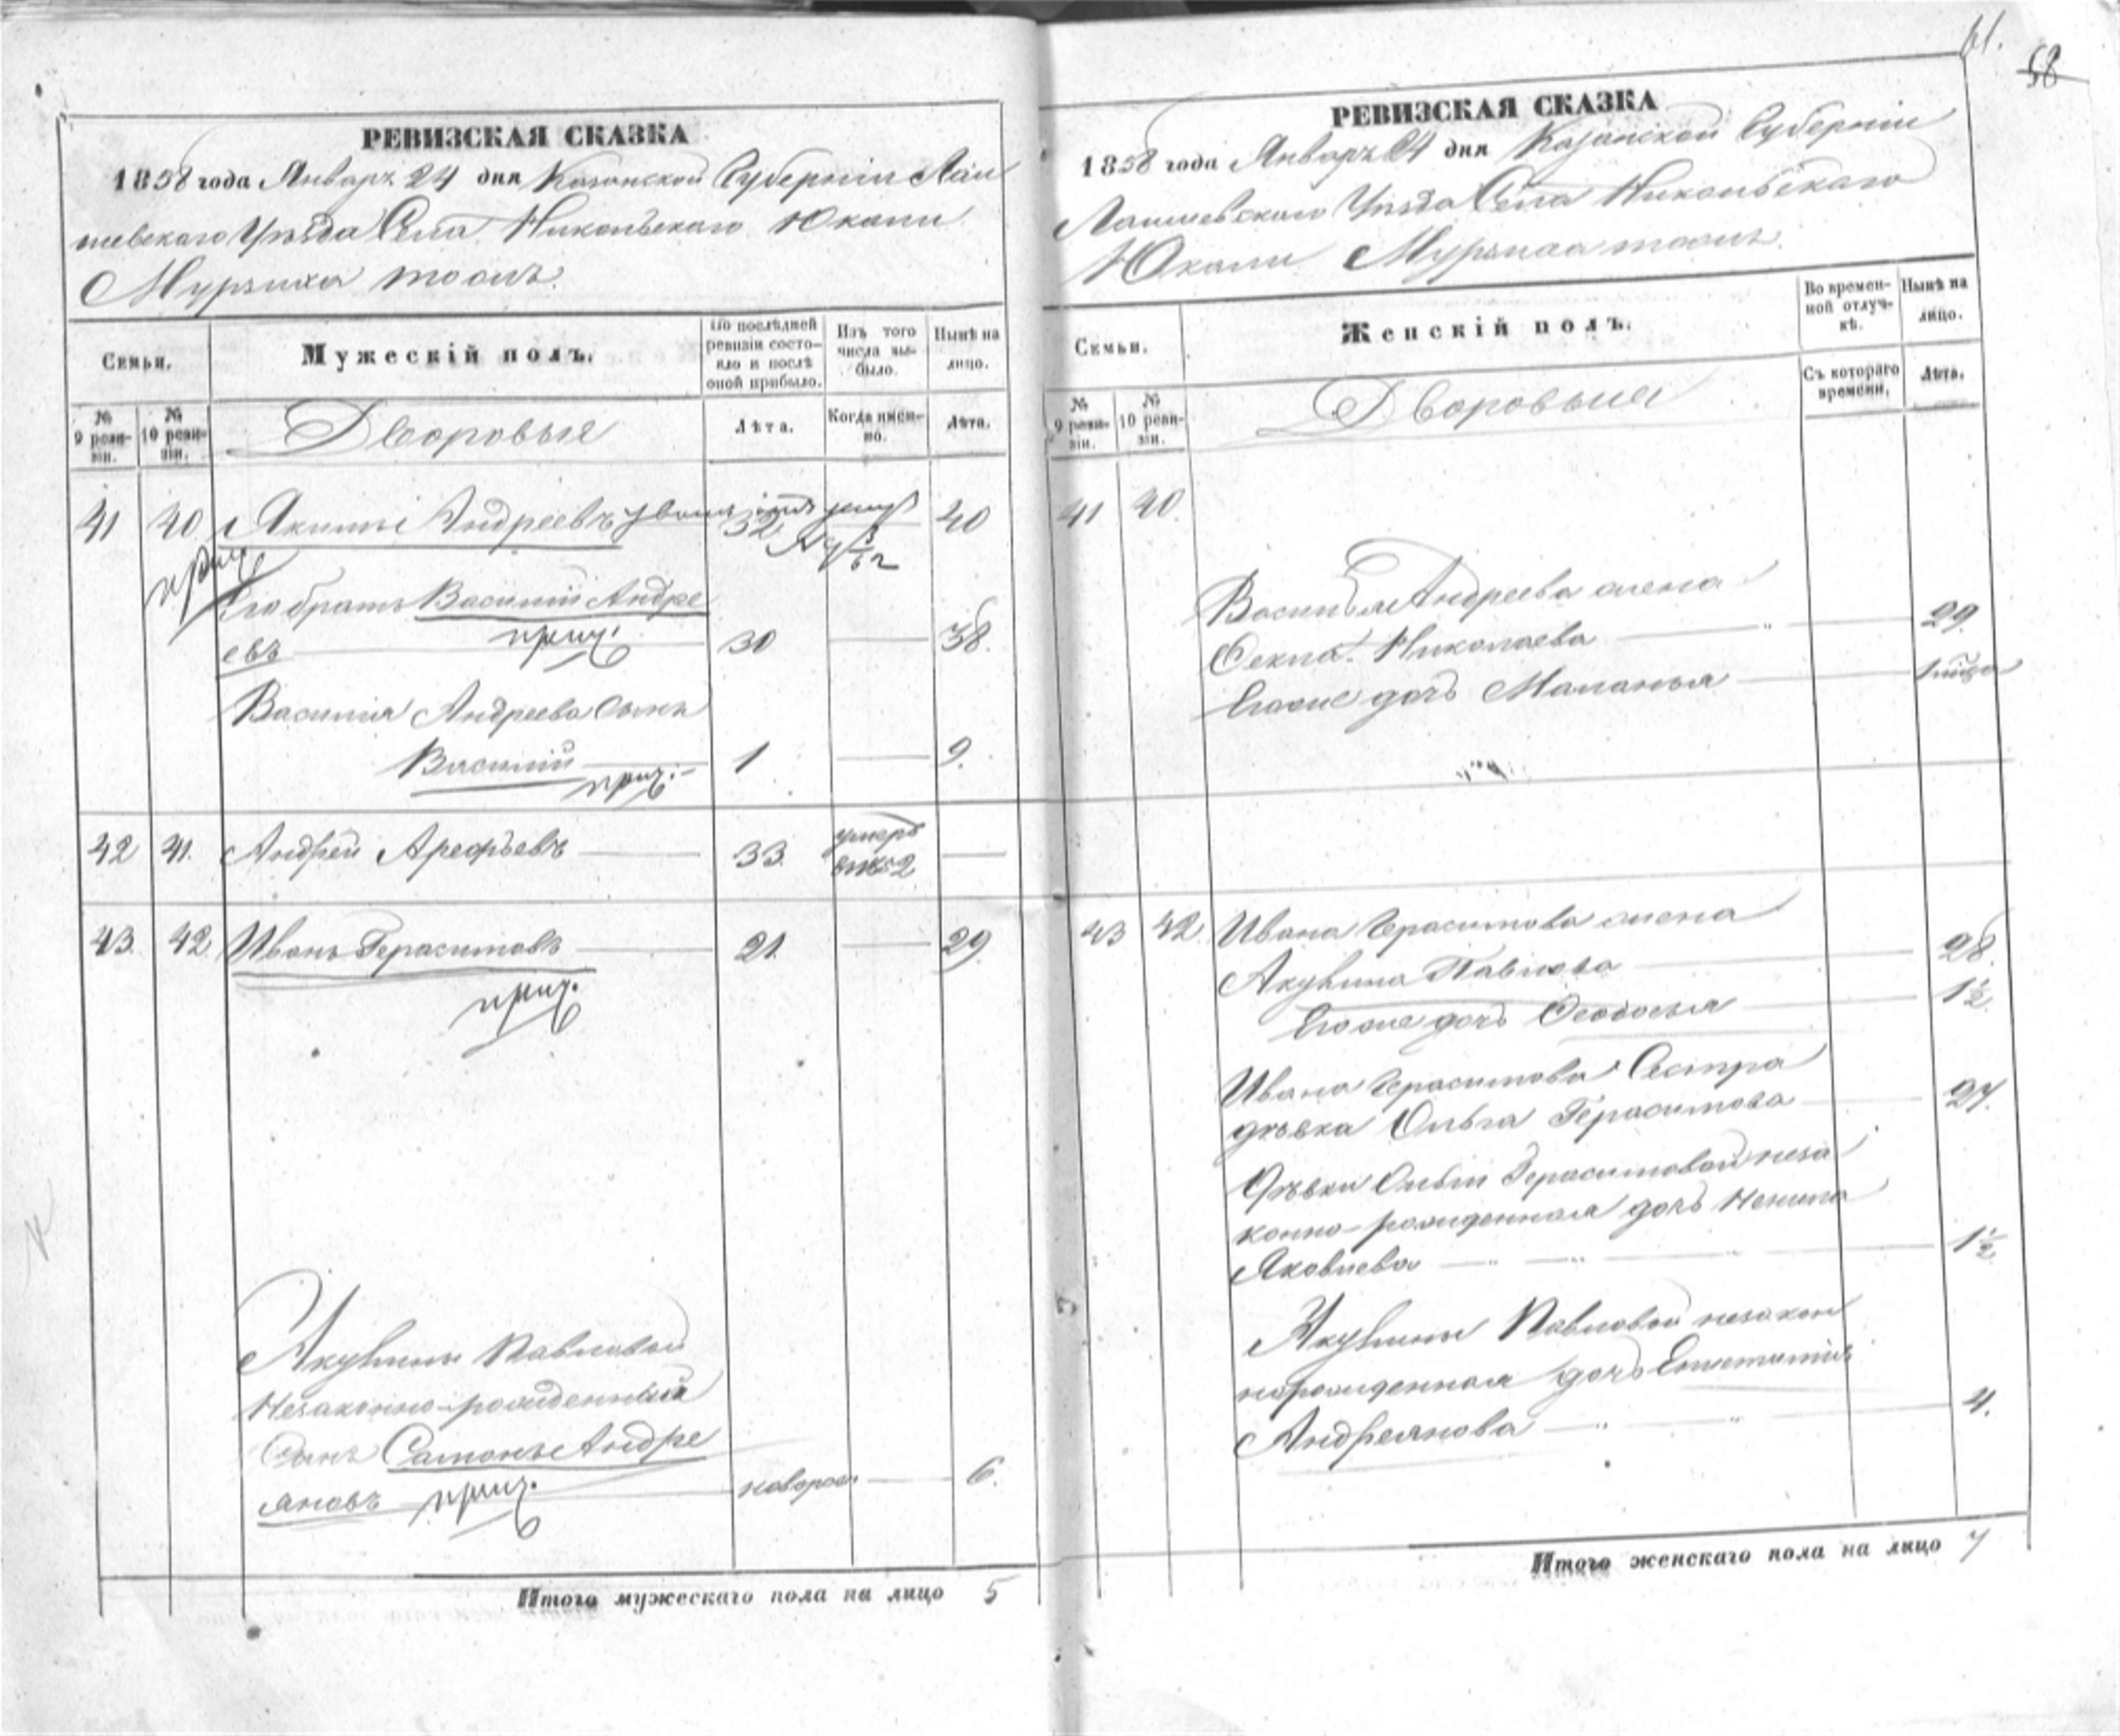 61.
58
РЕВИЗСКАЯ СКАЗКА
1858 года Январь 24 дня Казанской Губерніи Лаи
шевскаго Уѣзда Села Никольскаго Юкали
Мурзиха тожъ.
Семьи.
Мужескій полъ.
По послѣдней ревизіи состояло и послѣ оной прибыло.
Изъ того числа выбыло.
Нынѣ на лицо.
№ 9 ревизіи.
№ 10 ревизіи.
Дворовыя
Лѣта.
Когда именно.
Лѣта.
41 40 Якимъ Андреевъ 32 40
прич.
Его братъ Василій Андре
евъ прич. 30 38.
Василія Андреева сынъ
Василій 1 9.
прич.
42 41. Андрей Арефьевъ 33. умеръ 40
въ 1852
43. 42. Иванъ Герасимовъ 21. 29.
прич.
Акулины Павловой
Незаконно-рожденный
Сынъ Самонъ Андре
яновъ прич. новорож 6.
Итого мужескаго пола на лицо 5
РЕВИЗСКАЯ СКАЗКА
1858 года Январь 24 дня Казанской Губерніи
Лаишевскаго Уѣзда Села Никольскаго
Юкали Мурзиха тожъ.
Семьи.
Женскій полъ.
Во временной отлучкѣ.
Нынѣ на лицо.
№ 9 ревизіи.
№ 10 ревизіи.
Дворовыя
Съ котораго времени.
Лѣта.
41 40.
Василья Андреева жена
Фекла Николаева 29.
Егоже дочь Маланья
43 42. Ивана Герасимова жена
Акулина Павлова 28.
Егоже дочь Феодосья 1½.
Ивана Герасимова Сестра
дѣвка Ольга Герасимова 27.
Дѣвки Ольги Герасимовой неза
конно-рожденная дочь Ненила
Яковлева 1½
Акулины Павловой незакон
норожденная дочь
Андреянова 4.
Итого женскаго пола на лицо 7